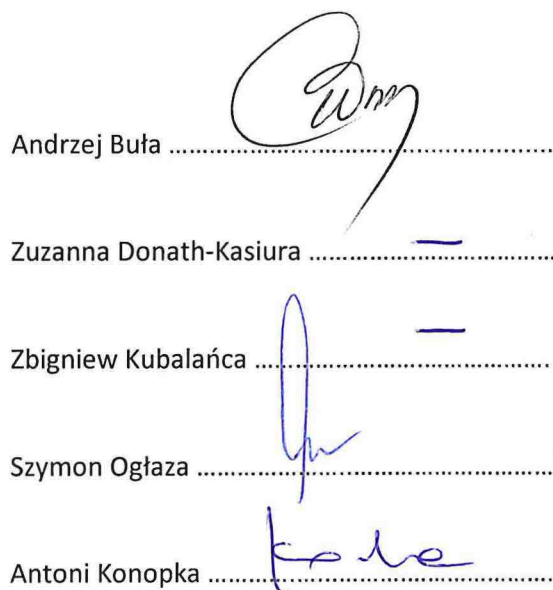 Andrzej Buła ..........................................................
Zuzanna Donath-Kasiura .....................................
—
Zbigniew Kubalańca ..............................................
—
Szymon Ogłaza .....................................................
Antoni Konopka ....................................................